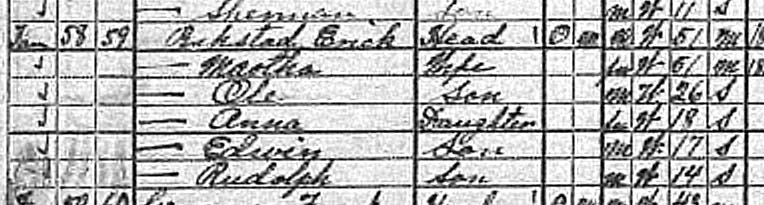 — Sherman Son m W 11 S
Fm 58 59 Erick Head 1 O m W 51 m
— Martha Wife W 51 m 18
— Ole Son m W 26 S
— Anna Daughter W 18 S
— Edwin Son m W 17 S
— Rudolph Son m W 14 S